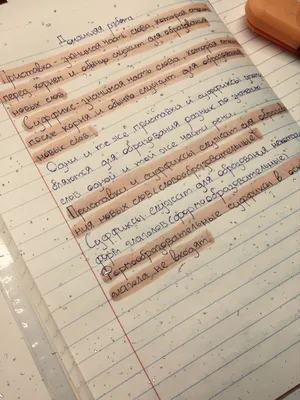 Домашняя работа
Приставка - значимая часть слова, которая стоит
перед корнем и обычно служит для образования
новых слов.
Суффикс - значимая часть слова, которая
после корня и обычно служит для образования
новых слов.
Одни и те же приставки и суффиксы
для образования разных по значению
слов одной и той же части речи.
Приставки и суффиксы служат для образова
ния новых слов (словообразовательные)
Суффиксы служат для образования
форм глаголов (формообразовательные)
Формообразовательные суффикс в
глагола не входят.